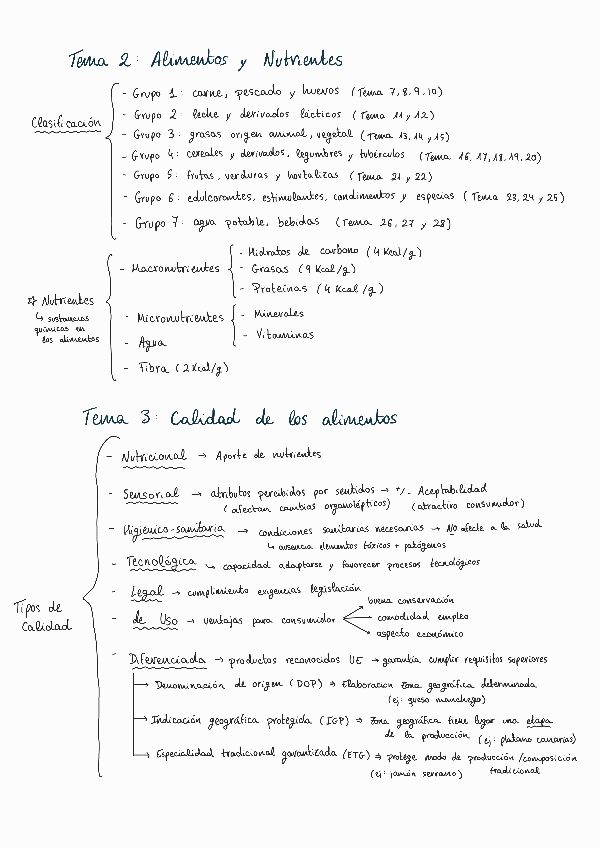 Tema 2: Alimentos y Nutrientes
Clasificación
- Grupo 1: carne, pescado y huevos (Tema 7,8,9,10)
- Grupo 2: leche y derivados lácticos (Tema 11 y 12)
- Grupo 3: grasas origen animal, vegetal (Tema 13,14 y 15)
- Grupo 4: cereales y derivados, legumbres y tubérculos (Tema 16, 17, 18, 19, 20)
- Grupo 5: frutas, verduras y hortalizas (Tema 21 y 22)
- Grupo 6: edulcorantes, estimulantes, condimentos y especias (Tema 23, 24 y 25)
- Grupo 7: agua potable, bebidas (Tema 26, 27 y 28)
☆ Nutrientes
↳ sustancias
químicas en
los alimentos
- Macronutrientes
- Hidratos de carbono (4 Kcal/g)
- Grasas (9 Kcal/g)
- Proteínas (4 Kcal/g)
- Micronutrientes
- Minerales
- Vitaminas
- Agua
- Fibra (2 Kcal/g)
Tema 3: Calidad de los alimentos
Tipos de
Calidad
- Nutricional → Aporte de nutrientes
- Sensorial → atributos percibidos por sentidos → +/- Aceptabilidad
(afectan cambios organolépticos) (atractivo consumidor)
- Higiénico-sanitaria → condiciones sanitarias necesarias → NO afecte a la salud
↳ ausencia elementos tóxicos + patógenos
- Tecnológica ↳ capacidad adaptarse y favorecer procesos tecnológicos
- Legal → cumplimiento exigencias legislación
- de Uso → ventajas para consumidor
buena conservación
comodidad empleo
aspecto económico
- Diferenciada → productos reconocidos UE → garantía cumplir requisitos superiores
→ Denominación de origen (DOP) ⇒ Elaboración zona geográfica determinada
(ej: queso manchego)
→ Indicación geográfica protegida (IGP) ⇒ zona geográfica tiene lugar una etapa
de la producción (ej: plátano canarias)
→ Especialidad tradicional garantizada (ETG) ⇒ protege modo de producción/composición
(ej: jamón serrano) tradicional